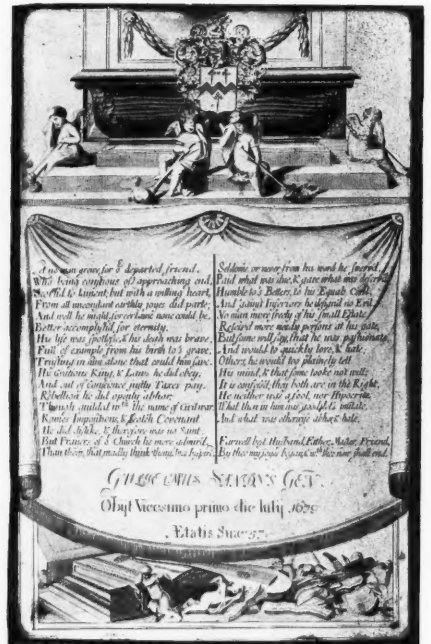 no man grave for yᵉ departed friend,
Who being conscious of's approaching end,
to lament, but with a willing heart,
From all inconstant earthly joyes did part;
And well he might for certaine none could be,
Better accomplish'd for eternity.
His life was spotlesse, & his death was brave,
Full of example from his birth to's grave,
Trusting in him alone that could him save.
His Gratious King, & Laws he did obey,
And out of Conscience justly Taxes pay.
Rebellion he did openly abhor,
Though guilded wᵗʰ the name of Civil war.
Romes Impositions, & Scotch Covenant
He did dislike, & therefore was no Saint.
But Frances of yᵉ Church he more admir'd,
Than those, that madly think themselves inspir'd.
Seldome, or never from his word he swerv'd,
Paid what was due, & gave what was deserv'd
Humble to's Betters, to his Equals Civil,
And 'gainst Inferiors he design'd no Evil.
No man more freely of his small Estate
Releived more needy persons at his gate,
But some will say, that he was passionate,
And would to quickly love, & hate
Others, he would too plainely tell
His mind, & that some tooke not well;
It is confess'd, they both are in the Right,
He neither was a fool, nor Hipocrite.
What then in him was good, let's imitate,
And what was otherwise abhor, & hate.
Farwell best Husband, Father, Master, Friend,
By thee my joys began, & wᵗʰ thee now shall end.
GEN.
Obyt Vicesimo primo die Iulij
Ætatis Suæ